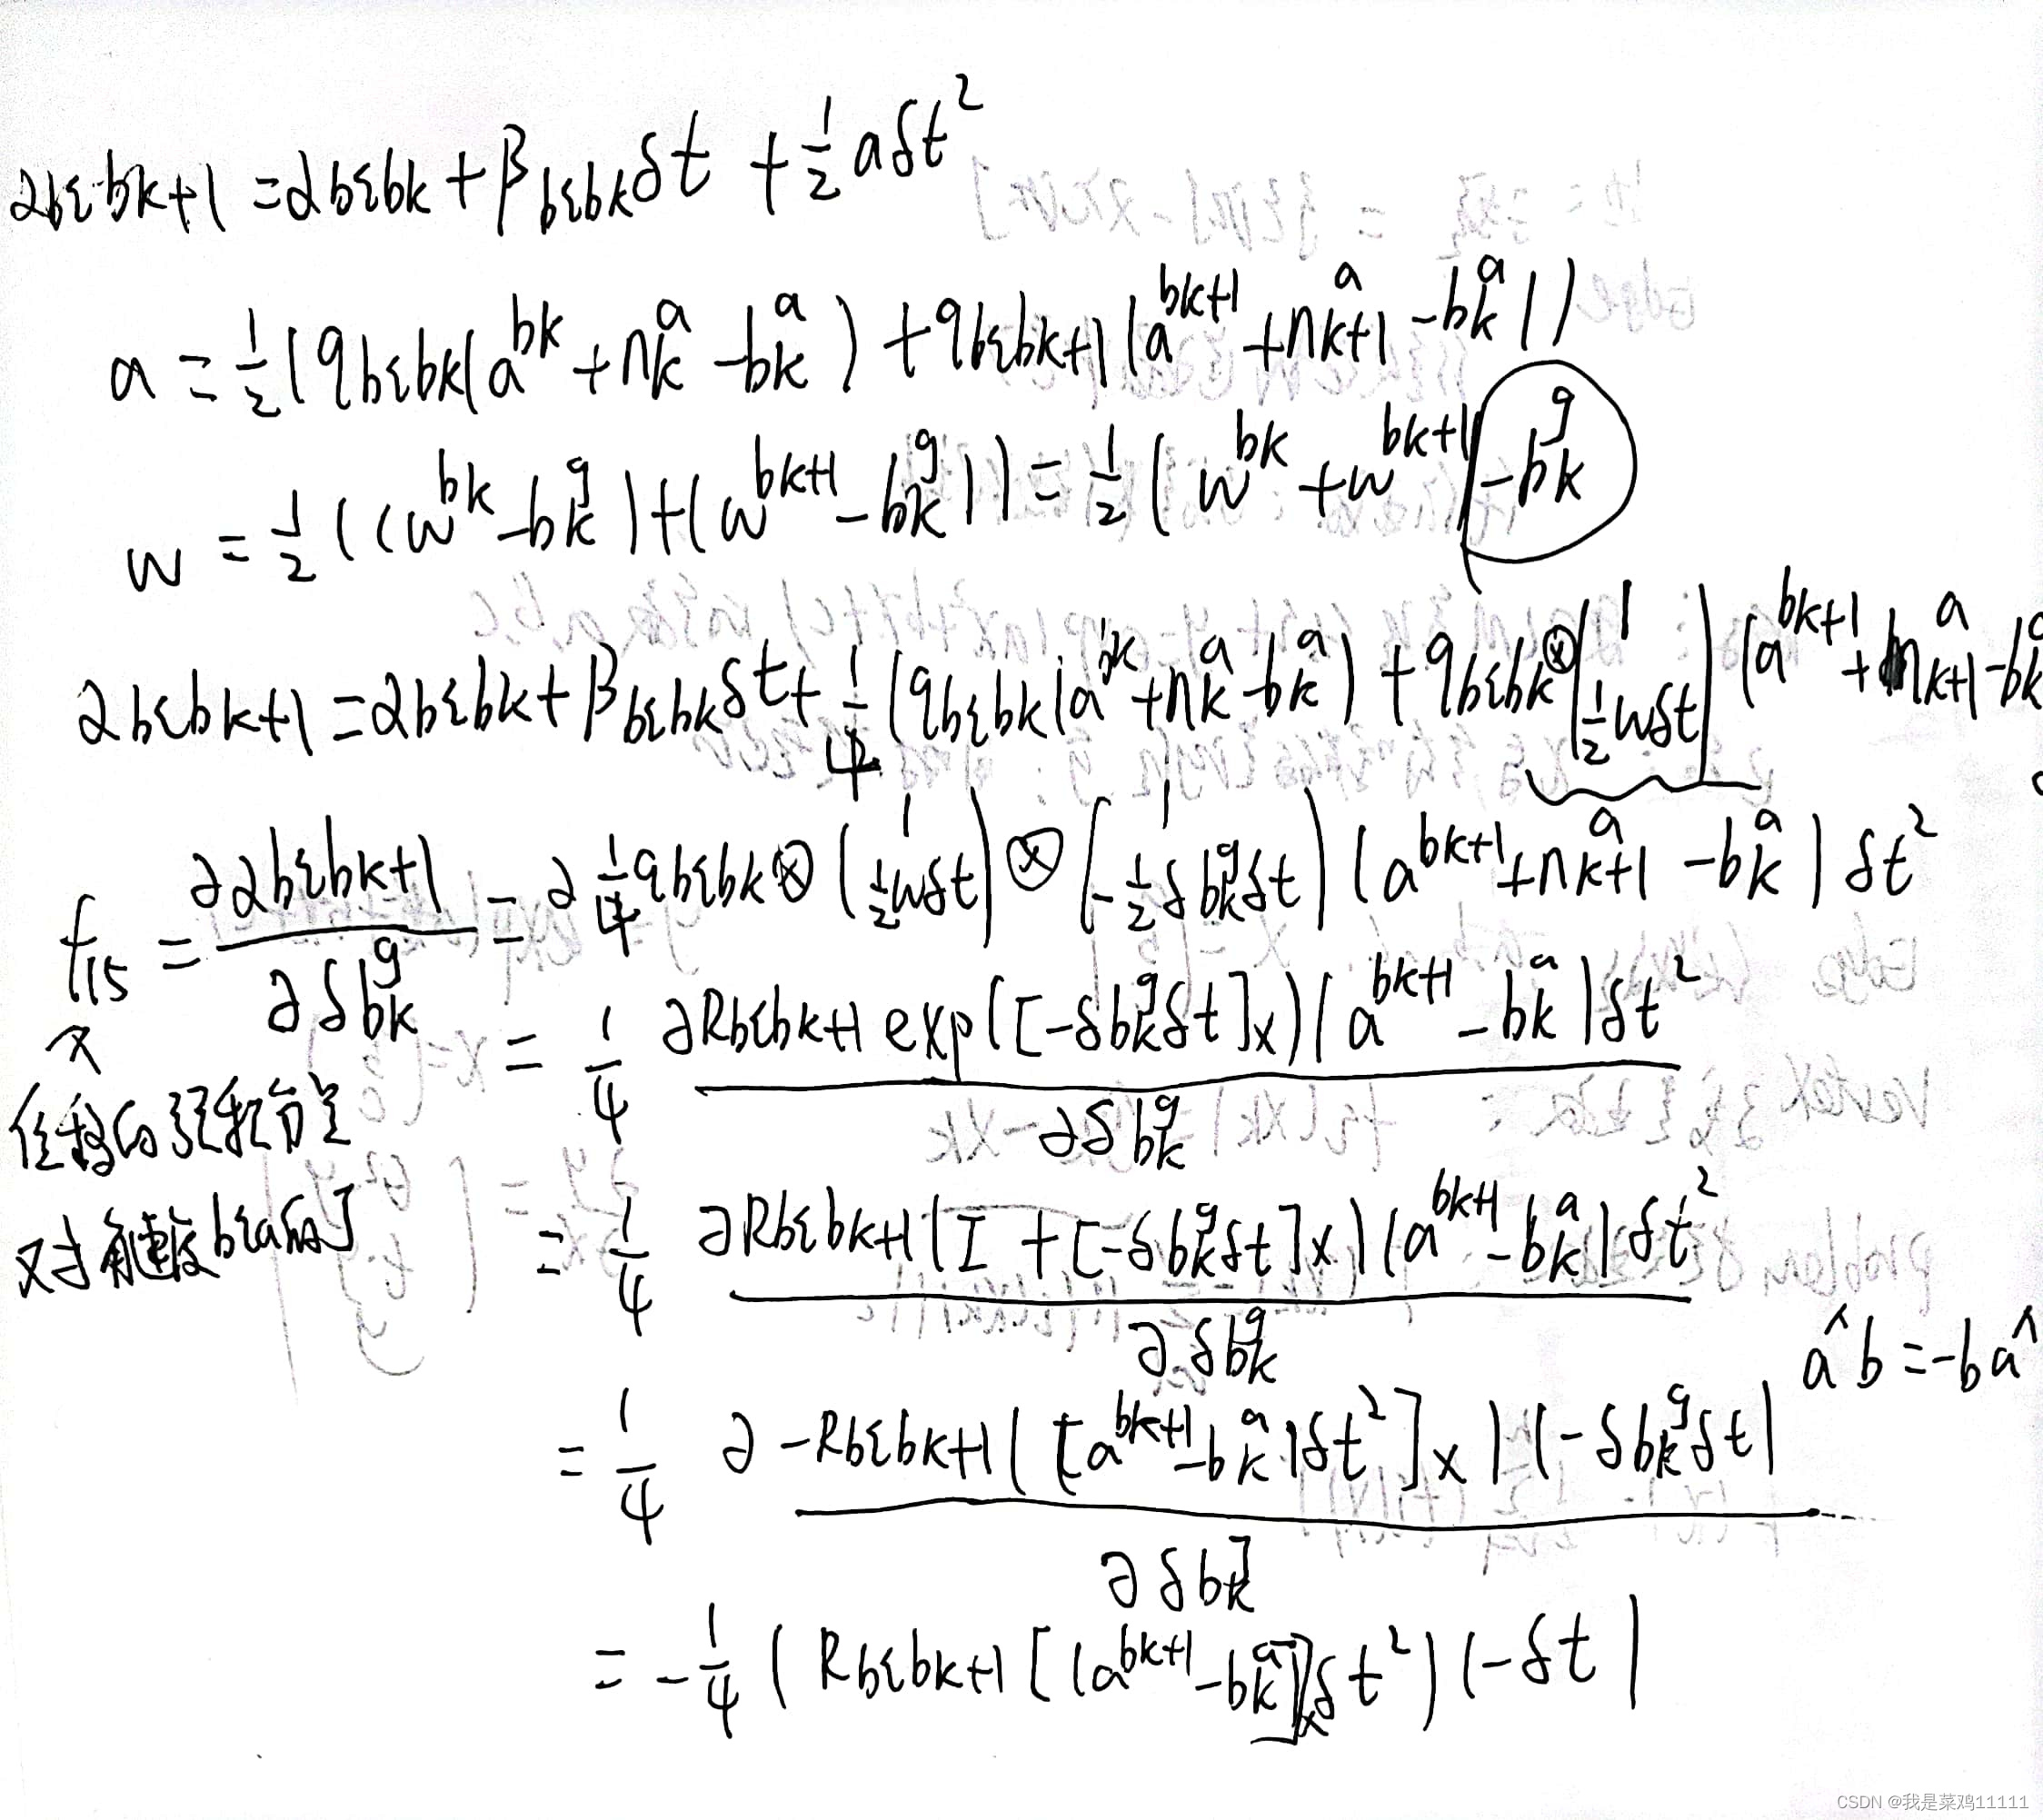 αbibk+1 = αbibk + βbibkδt + 1/2 aδt²
a = 1/2 (qbibk(a^bk + nk^a - bk^a) + qbibk+1(a^bk+1 + nk+1^a - bk^a))
w = 1/2 ((w^bk - bk^g) + (w^bk+1 - bk^g)) = 1/2 (w^bk + w^bk+1) - bk^g
αbibk+1 = αbibk + βbibkδt + 1/4 (qbibk(a^bk + nk^a - bk^a) + qbibk⊗(1 1/2wδt)(a^bk+1 + nk+1^a - bk^a
f15 = ∂αbibk+1 / ∂δbk^g = ∂ 1/4 qbibk⊗(1 1/2wδt)⊗[1 -1/2δbk^gδt](a^bk+1 + nk+1^a - bk^a)δt²
= 1/4 ∂Rbibk+1 exp([-δbk^gδt]x)(a^bk+1 - bk^a)δt² / ∂δbk^g
位移的预积分量
对角速度bias的J
= 1/4 ∂Rbibk+1(I + [-δbk^gδt]x)(a^bk+1 - bk^a)δt² / ∂δbk^g
a^b = -ba^
= 1/4 ∂-Rbibk+1([a^bk+1 - bk^a)δt²]x)(-δbk^gδt) / ∂δbk^g
= -1/4 (Rbibk+1[(a^bk+1 - bk^a)]xδt²)(-δt)
CSDN @我是菜鸡11111